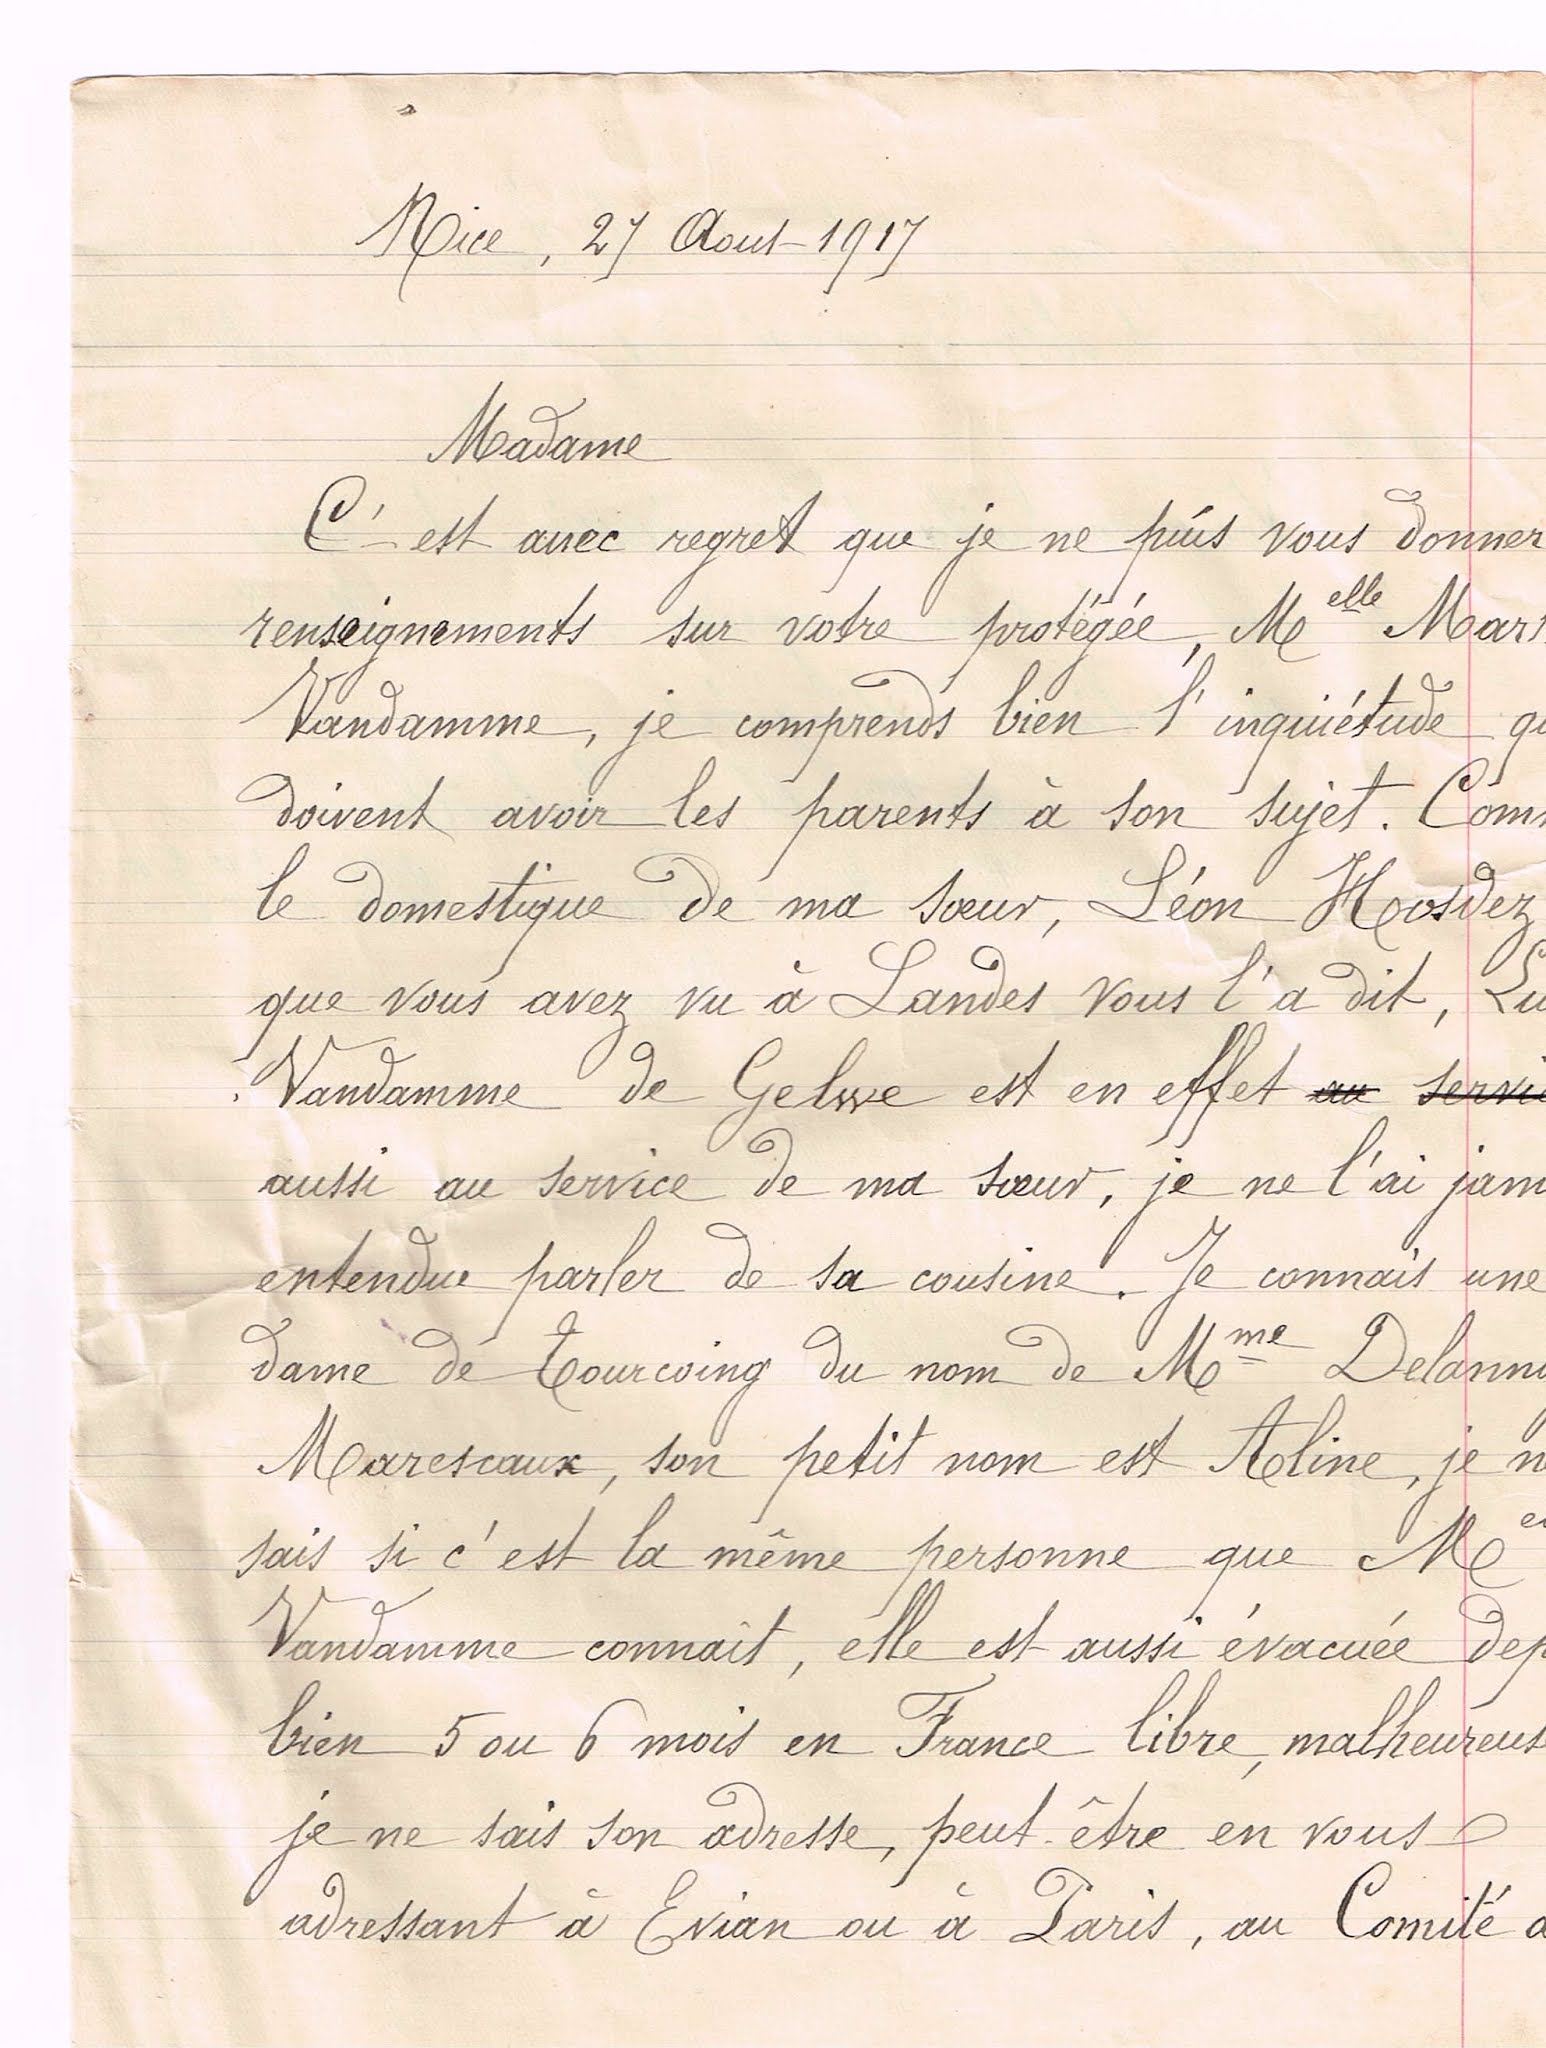 Nice, 27 Aout 1917
Madame
C'est avec regret que je ne puis vous donner
renseignements sur votre protégée, Melle Mari
Vandamme, je comprends bien l'inquiétude qu
doivent avoir les parents à son sujet. Com
le domestique de ma sœur, Léon Hoosdez
que vous avez vu à Landes vous l'a dit, Lu
Vandamme de Gelwe est en effet au servi
aussi au service de ma sœur, je ne l'ai jam
entendue parler de sa cousine. Je connais une
dame de Tourcoing du nom de Mme Delanno
Marescaux, son petit nom est Aline, je n
sais si c'est la même personne que Me
Vandamme connait, elle est aussi évacuée dep
bien 5 ou 6 mois en France libre, malheureus
je ne sais son adresse, peut-être en vous
adressant à Evian ou à Paris, au Comité d